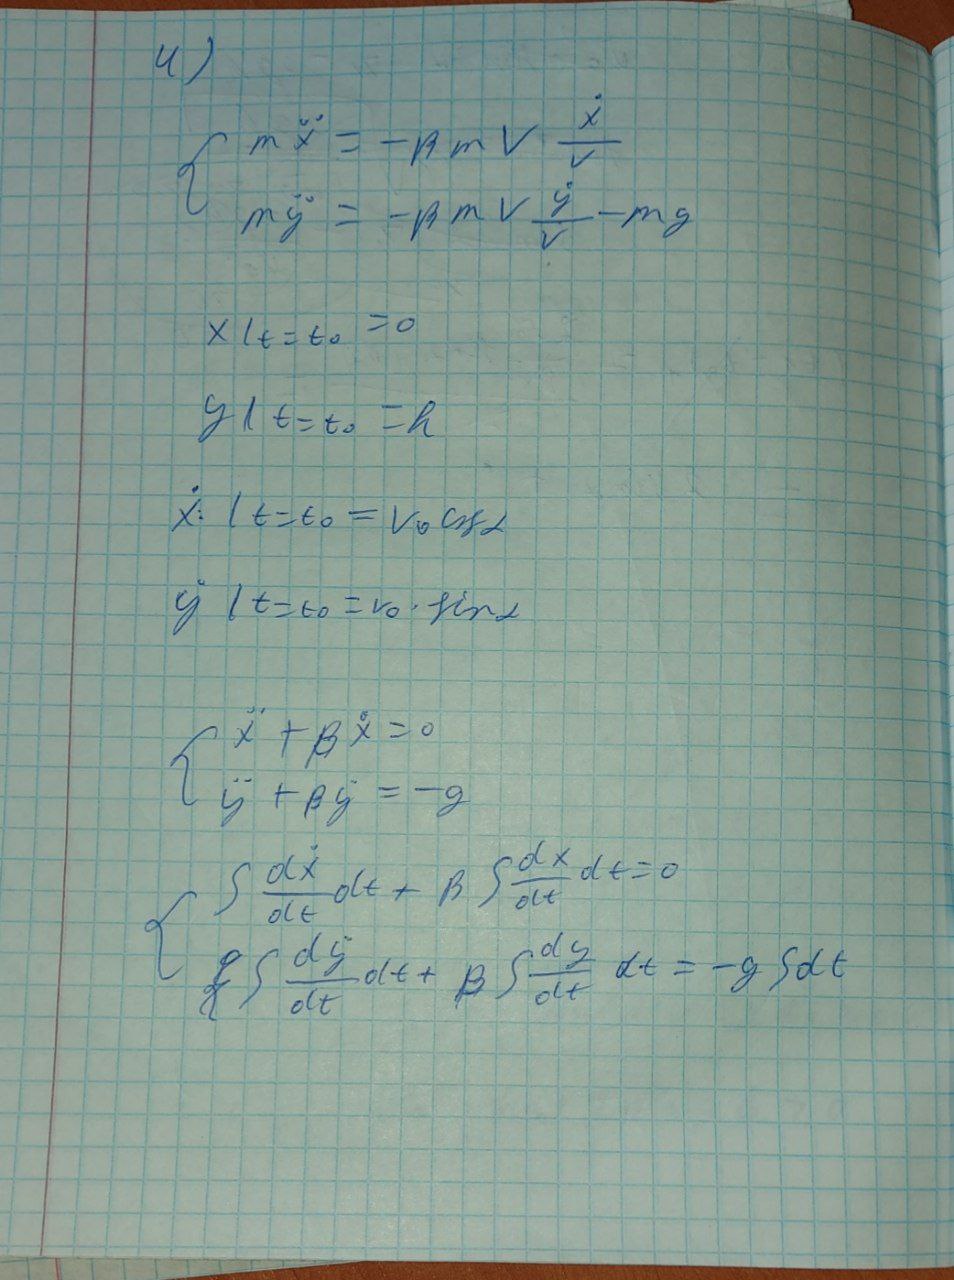 4)
mẍ = -βmV ẋ/V
mÿ = -βmV ẏ/V - mg
x|t=t₀ = 0
y|t=t₀ = h
ẋ|t=t₀ = V₀ cosα
ẏ|t=t₀ = v₀·sinα
ẍ + βẋ = 0
ÿ + βẏ = -g
∫ dẋ/dt dt + β ∫ dx/dt dt = 0
∫ dẏ/dt dt + β ∫ dy/dt dt = -g ∫dt